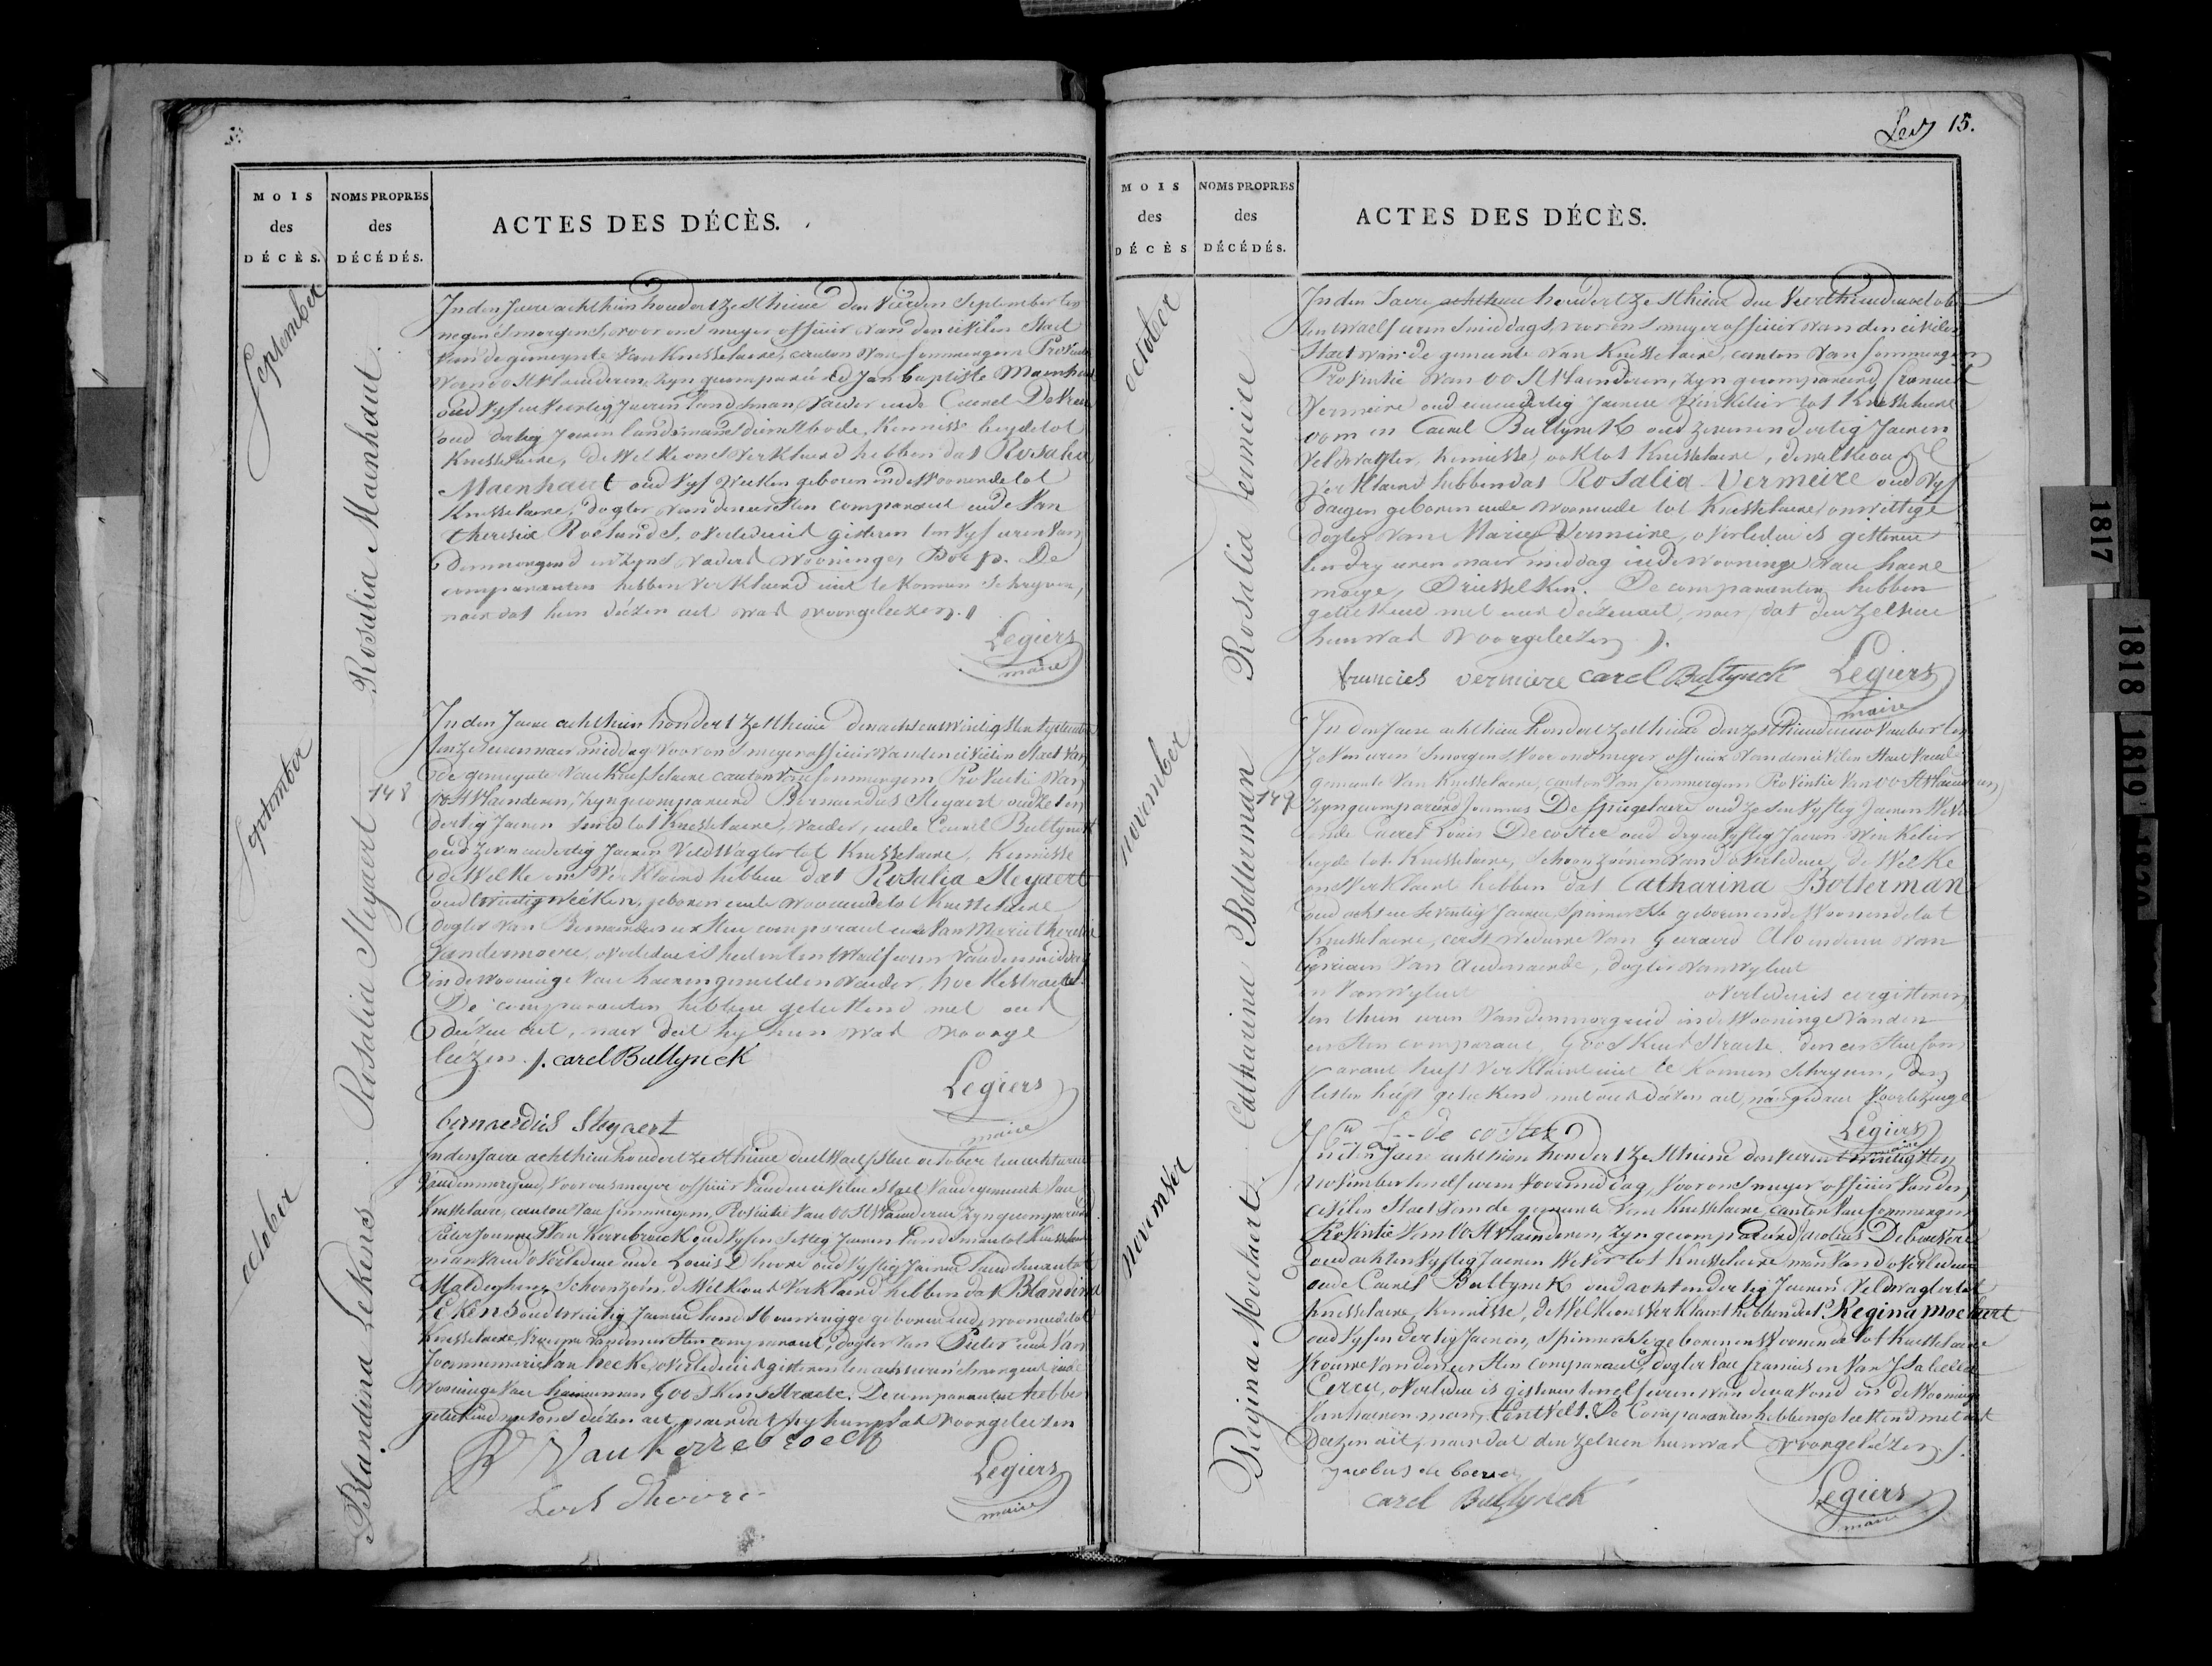 MOIS
des
DÉCÈS.
NOMS PROPRES
des
DÉCÉDÉS.
ACTES DES DÉCÈS.
September
Rosalia Maenhaut.
In den Jaere achthien hondert zesthiene den Vierden September ten
negen s'morgens, voor ons meyer officier van den civilen Staet
van de gemeynte van Knesselaere, canton van Sommergem Provintie
van oostvlaenderen, zyn gecompareerd Jan baptiste Maenhaut
oud vyfenveertig Jaeren landsman, vaeder ende Caerel De
oud dertig Jaeren landsmans dienstbode, kennisse beyde tot
Knesselaere, de Welke ons verklaerd hebben dat Rosalia
Maenhaut oud vyf Weeken geboren ende Woonende tot
Knesselaere, dogter van den eersten comparant ende van
theresia Roelands, overleden is gisteren ten vyf uren van
den morgend in zyns vaeders Wooninge, Dorp. De
comparanten hebben verklaerd niet te konnen schryven,
naer dat hun deézen act was voorgeleezen.
Legiers
maire
September
148
Rosalia Steyaert
In den Jaere achthien hondert zesthiene den achtentwintigsten September
ten zes uren naer middag voor ons meyer officier van den civielen Staet van
de gemeynte van Knesselaere canton van Sommergem Provintie van
oostvlaenderen, zyn gecompareerd Bernaerdus Steyaert oud zesen
dertig Jaeren smid tot Knesselaere, vaeder, ende Caerel Bultynck
oud zevenendertig Jaeren Veldwagter tot Knesselaere, Kennisse
de Welke ons verklaerd hebben dat Rosalia Steyaert
oud twintig weéken, geboren ende woonende tot Knesselaere
dogter van Bernaerdus eersten comparant ende van Marie theresia
Vandermoere overleden is heden ten twaelf uren van den middag
in de wooninge van haeren gemelden vaeder,
De comparanten hebben geteekend met ons
deézen act, naer dat hy hun was voorge
leézen. carel Bultynck
Legiers
maire
bernaerdus Steyaert
october
Blandina Lekens
In den Jaere achthien hondert zesthiene den twaelfsten october ten acht uren
van den morgend, voor ons meyer officier van den civilen Staet van de gemeente van
Knesselaere, canton van Sommergem, Provintie van oostvlaenderen zyn gecompareerd
Pieter Joannes Van Kerrebroeck oud vyfen sestig Jaeren landsman tot Knesselaere
man van d'overledene ende Louis D'hoore oud vyftig Jaeren Landsman tot
Maldeghem, Schoonzoon, de Welke ons verklaerd hebben dat Blandina
Lekens oud Jaeren geboren ende woonende tot
Knesselaere, van den eersten comparant, dogter van Pieter ende van
Joanna marie Van hecke, overleden is gisteren ten acht uren s'morgens in de
Wooninge van haeren man Goeskens Straete. De comparanten hebben
geteekend met ons deézen act, naer dat hy hun was voorgeleézen
Van Kerrebroeck
Legiers
maire
Lowis dhoore
Lev 15.
MOIS
des
DÉCÈS
NOMS PROPRES
des
DÉCÉDÉS.
ACTES DES DÉCÈS.
october
Rosalia Vermeire
In den Jaere achthien hondert zesthiene den Veerthienden october
ten twaelf uren s'middags, voor ons meyer officier van den civilen
Staet van de gemeente van Knesselaere, canton van Sommergem
Provintie van oostvlaenderen, zyn gecompareerd francies
Vermeire oud eenendertig Jaeren Winkelier tot Knesselaere
oom en Caerel Bultynck oud zevenendertig Jaeren
Veldwagter, kennisse, ook tot Knesselaere, dewelke ons
verklaerd hebben dat Rosalia Vermeire oud vyf
daegen geboren ende woonende tot Knesselaere, onwettige
dogter van Marie Vermeire, overleden is gisteren
ten dry uren naer middag in de wooninge van haere
moeye, Driesselken. De comparanten hebben
geteekend met ons deézen act, naer dat den zelven
hun was voorgeleezen.
francies vermeire carel Bultynck Legiers
maire
november
149
Catharina Botterman
In den Jaere achthien hondert zesthiene den zesthienden november ten
zeven uren s'morgens, Voor ons meyer officier van den civilen Staet van de
gemeente van Knesselaere, canton van Sommergem Provintie van oostvlaenderen
zyn gecompareerd Joannes De Spiegelaere oud zesenvyftig Jaeren Wever
ende Caerel Louis Decoster oud dryenvyftig Jaeren Winkelier
beyde tot Knesselaere, Schoonzoonen van d'overledene, de Welke
ons verklaert hebben dat Catharina Botterman
oud achtenseventig Jaeren, Spinnersse geboren ende Woonende tot
Knesselaere, eerst weduwe van Geeraerd van
Van Audenaerde, dogter van wylent
en van wylent overleden is eergisteren
ten thien uren van den morgend in de Wooninge van den
eersten comparant, Goeskens Straete. den eersten com
parant heeft verklaert niet te konnen Schryven, den
lesten heeft geteekend met ons deézen act, naer gedaene Voorlezinge
C. L. de coster Legiers
maire
november
Regina Moekaert
In den Jaere achthien hondert zesthiene den vierentwintigsten
november ten elf uren voormiddag, voor ons meyer officier van den
civilen Staet van de gemeente van Knesselaere, canton van Sommergem
Provintie van oostvlaenderen, zyn gecompareerd Jacobus Debaevere
oud achtenvyftig Jaeren Wever tot Knesselaere man van d'overledene
ende Caerel Bultynck oud achtendertig Jaeren Veldwagter tot
Knesselaere, kennisse, de Welke ons verklaert hebben dat Regina Moekaert
oud vyfendertig Jaeren, Spinnersse geboren en Woonende tot Knesselaere
Vrouwe van den eersten comparant, dogter van francies en van Isabella
overleden is gisteren ten elf uren van den avond in de Wooninge
van haeren man, Hontvelt. De Comparanten hebben geteekend met ons
deezen act, naer dat den zelven hun was voorgeleézen.
Jacobus de baever
carel Bultynck
Legiers
maire
1817
1818
1819